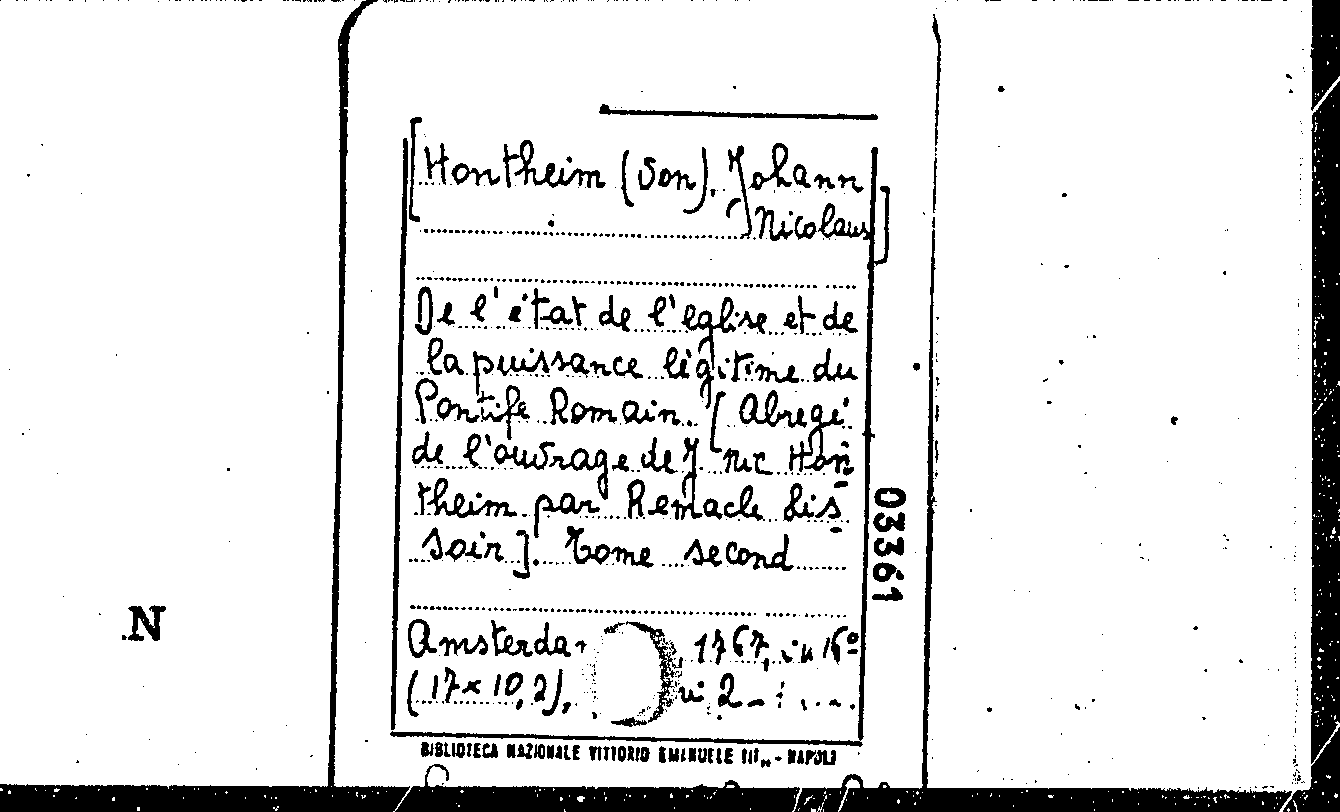 [Hontheim (von), Johann
Nicolaus]
De l'état de l'eglise et de
la puissance légitime du
Pontife Romain. [Abregé
de l'ouvrage de J nic Hon
theim par Remacle Lis
soir]. Tome second
03361
N
1767, in 16º
(17x10,2),
BIBLIOTECA NAZIONALE VITTORIO EMANUELE III„ - NAPOLI